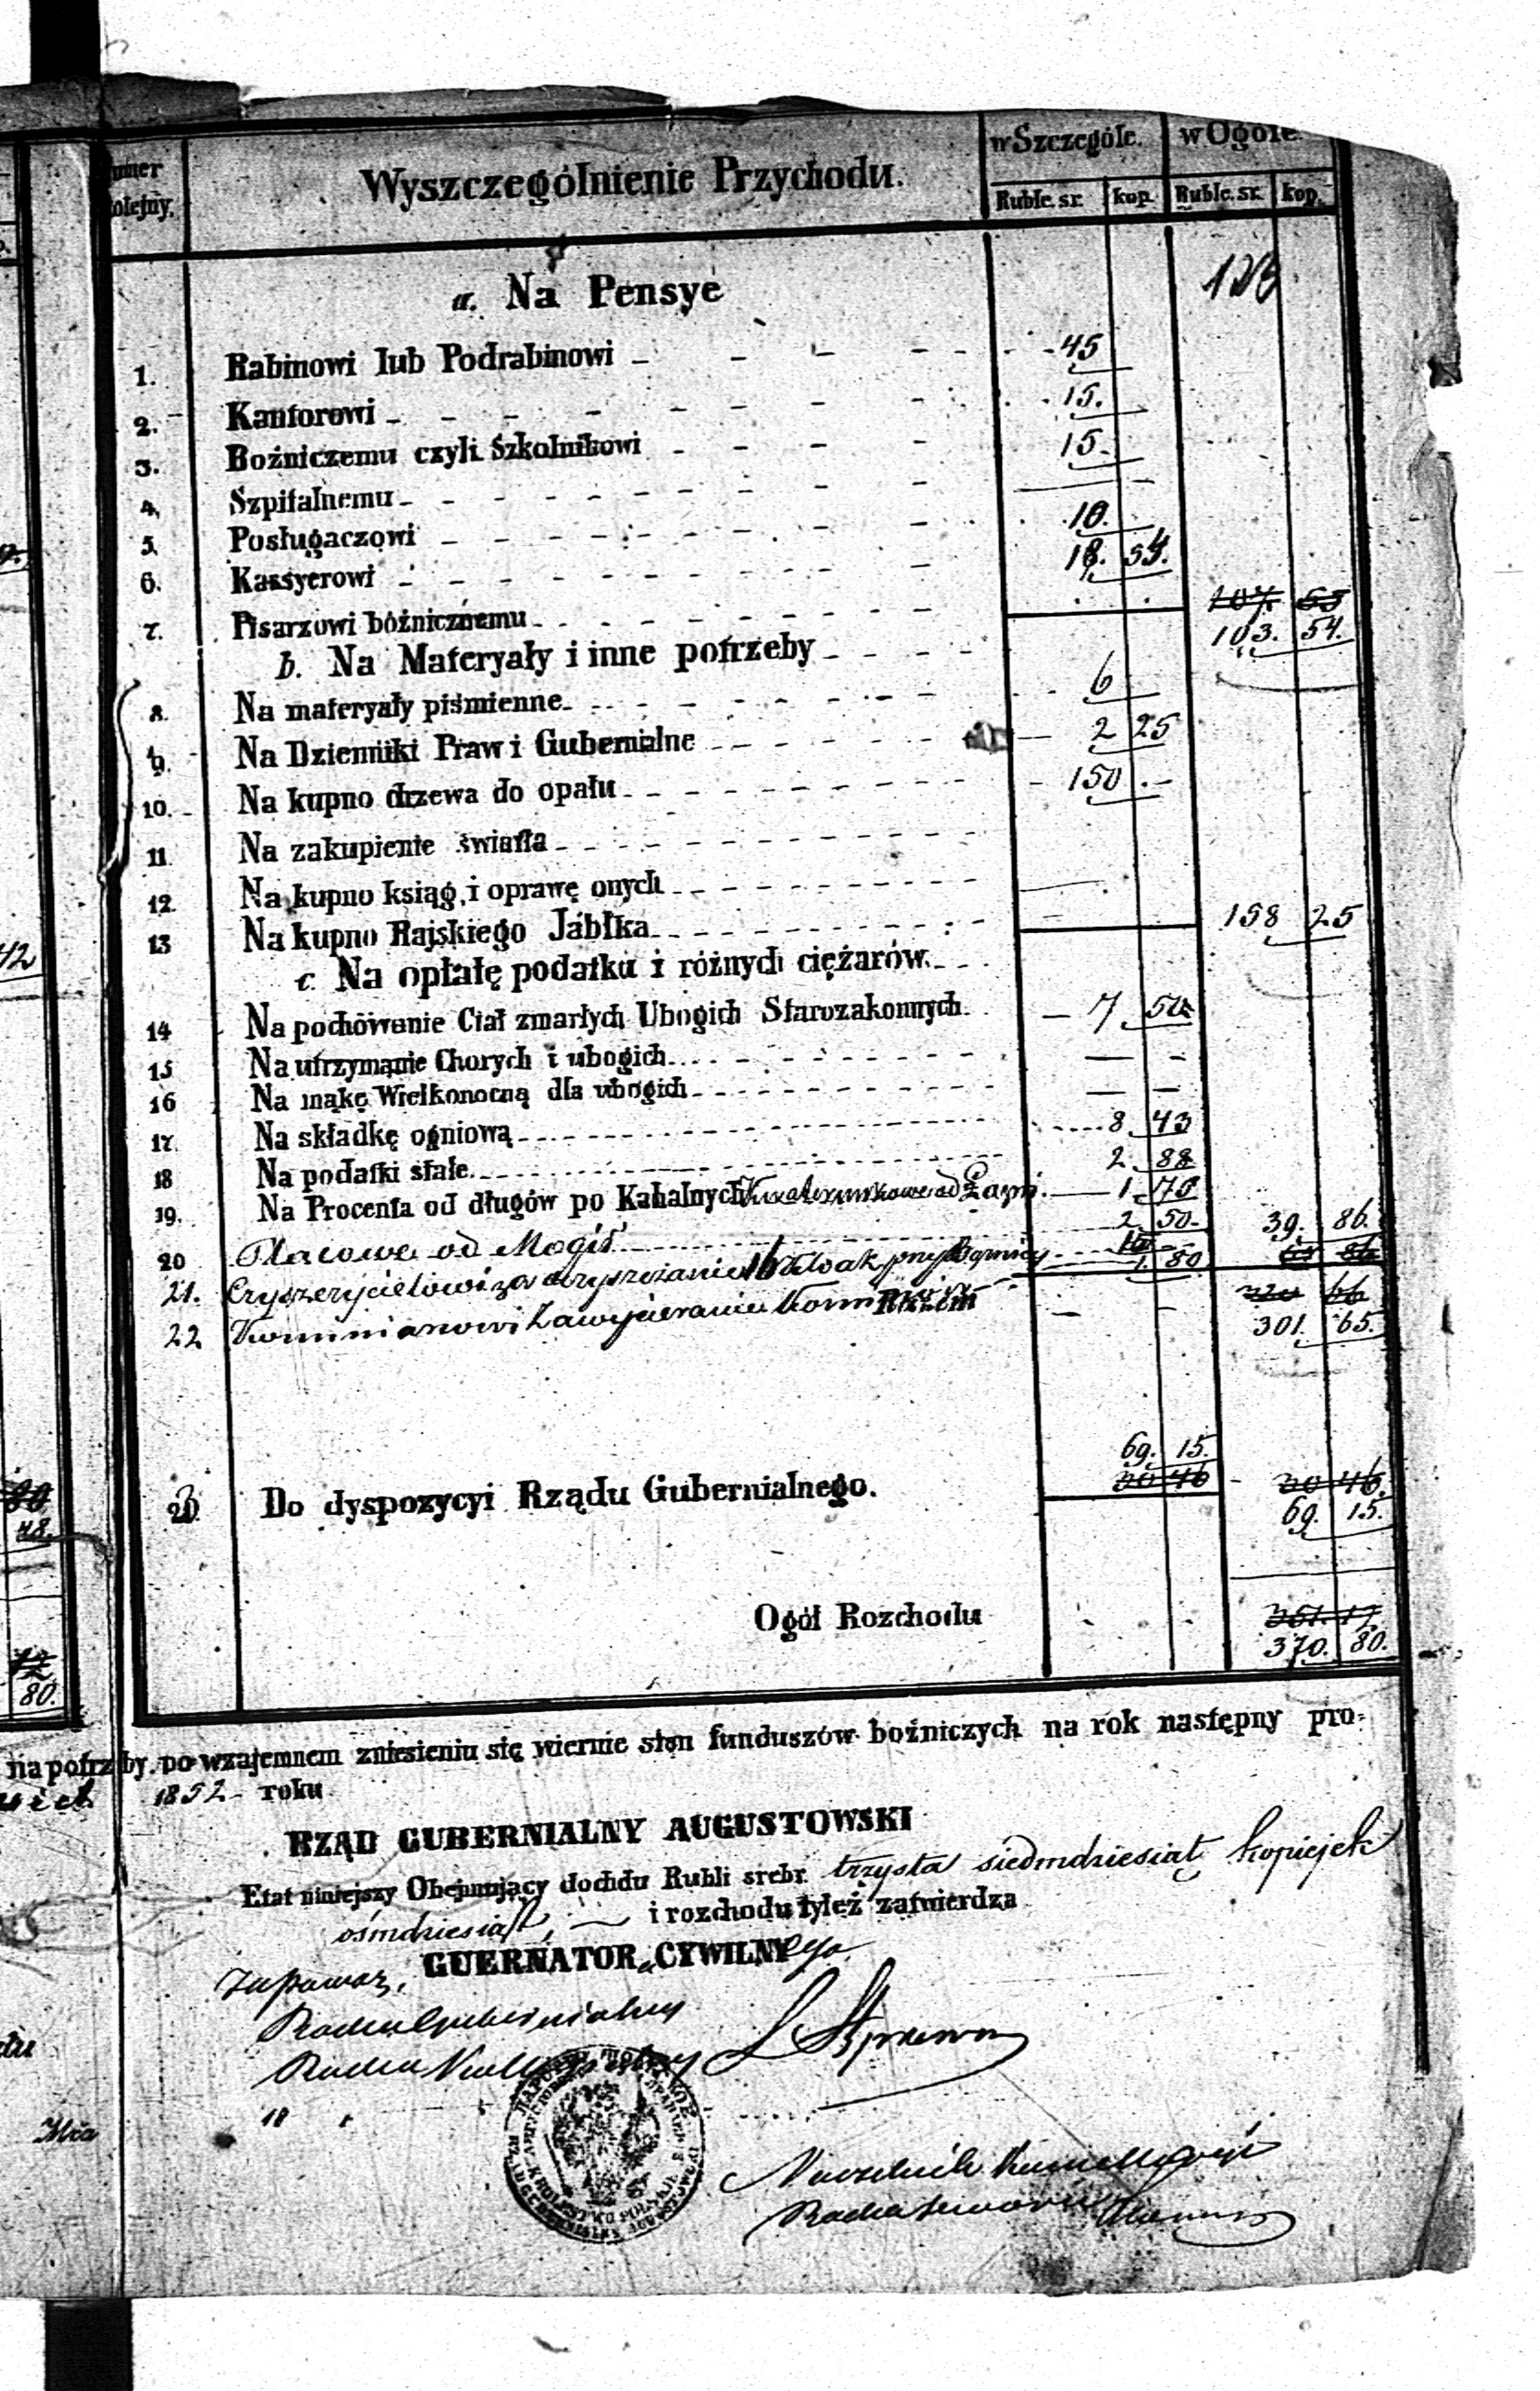 Numer
kolejny.
Wyszczególnienie Przychodu.
w Szczególe. w Ogóle.
Ruble. sr. kop. Ruble. sr. kop.
a. Na Pensye
1. Rabinowi lub Podrabinowi 45
2. Kantorowi 15.
3. Bożniczemu czyli Szkolnikowi 15.
4. Szpitalnemu
5. Posługaczowi 10.
6. Kassyerowi 18. 54.
7. Pisarzowi bóżnicznemu 107. 53
103. 54.
b. Na Materyały i inne potrzeby
8. Na materyały piśmienne 6
9. Na Dzienniki Praw i Gubernialne 2 25
10. Na kupno drzewa do opału 150
11 Na zakupienie światła
12. Na kupno ksiąg, i oprawę onych
13 Na kupno Rajskiego Jabłka 158 25
c. Na opłatę podatku i różnych ciężarów.
14 Na pochowanie Ciał zmarłych Ubogich Starozakonnych. 7 50
15 Na utrzymanie Chorych i ubogich
16 Na mąkę Wielkonocną dla ubogich
17. Na składkę ogniową 8 43
18 Na podatki stałe 2 88
19. Na Procenta od długów po Kahalnych od Łazni 1 75
20 Placowe od Mogił 2 50. 39. 86.
21. 1 80
22 Kominiarowi
301. 65.
69. 15.
30 46 30 46.
Do dyspozycyi Rządu Gubernialnego. 69. 15.
Ogół Rozchodu
370. 80.
42
48.
80.
na potrzeby. po wzajemnem zniesieniu się wiernie stan funduszów bożniczych na rok następny pro-
1852 roku
RZĄD GUBERNIALNY AUGUSTOWSKI
Etat niniejszy Obejmujący dochdu Rubli srebr. trzysta siedmdziesiąt kopiejek
ośmdziesiąt, — i rozchodu tyleż zatwierdza
GUERNATOR CYWILNY
Radca Gubernialny
Radca
18
Naczelnik
Radca